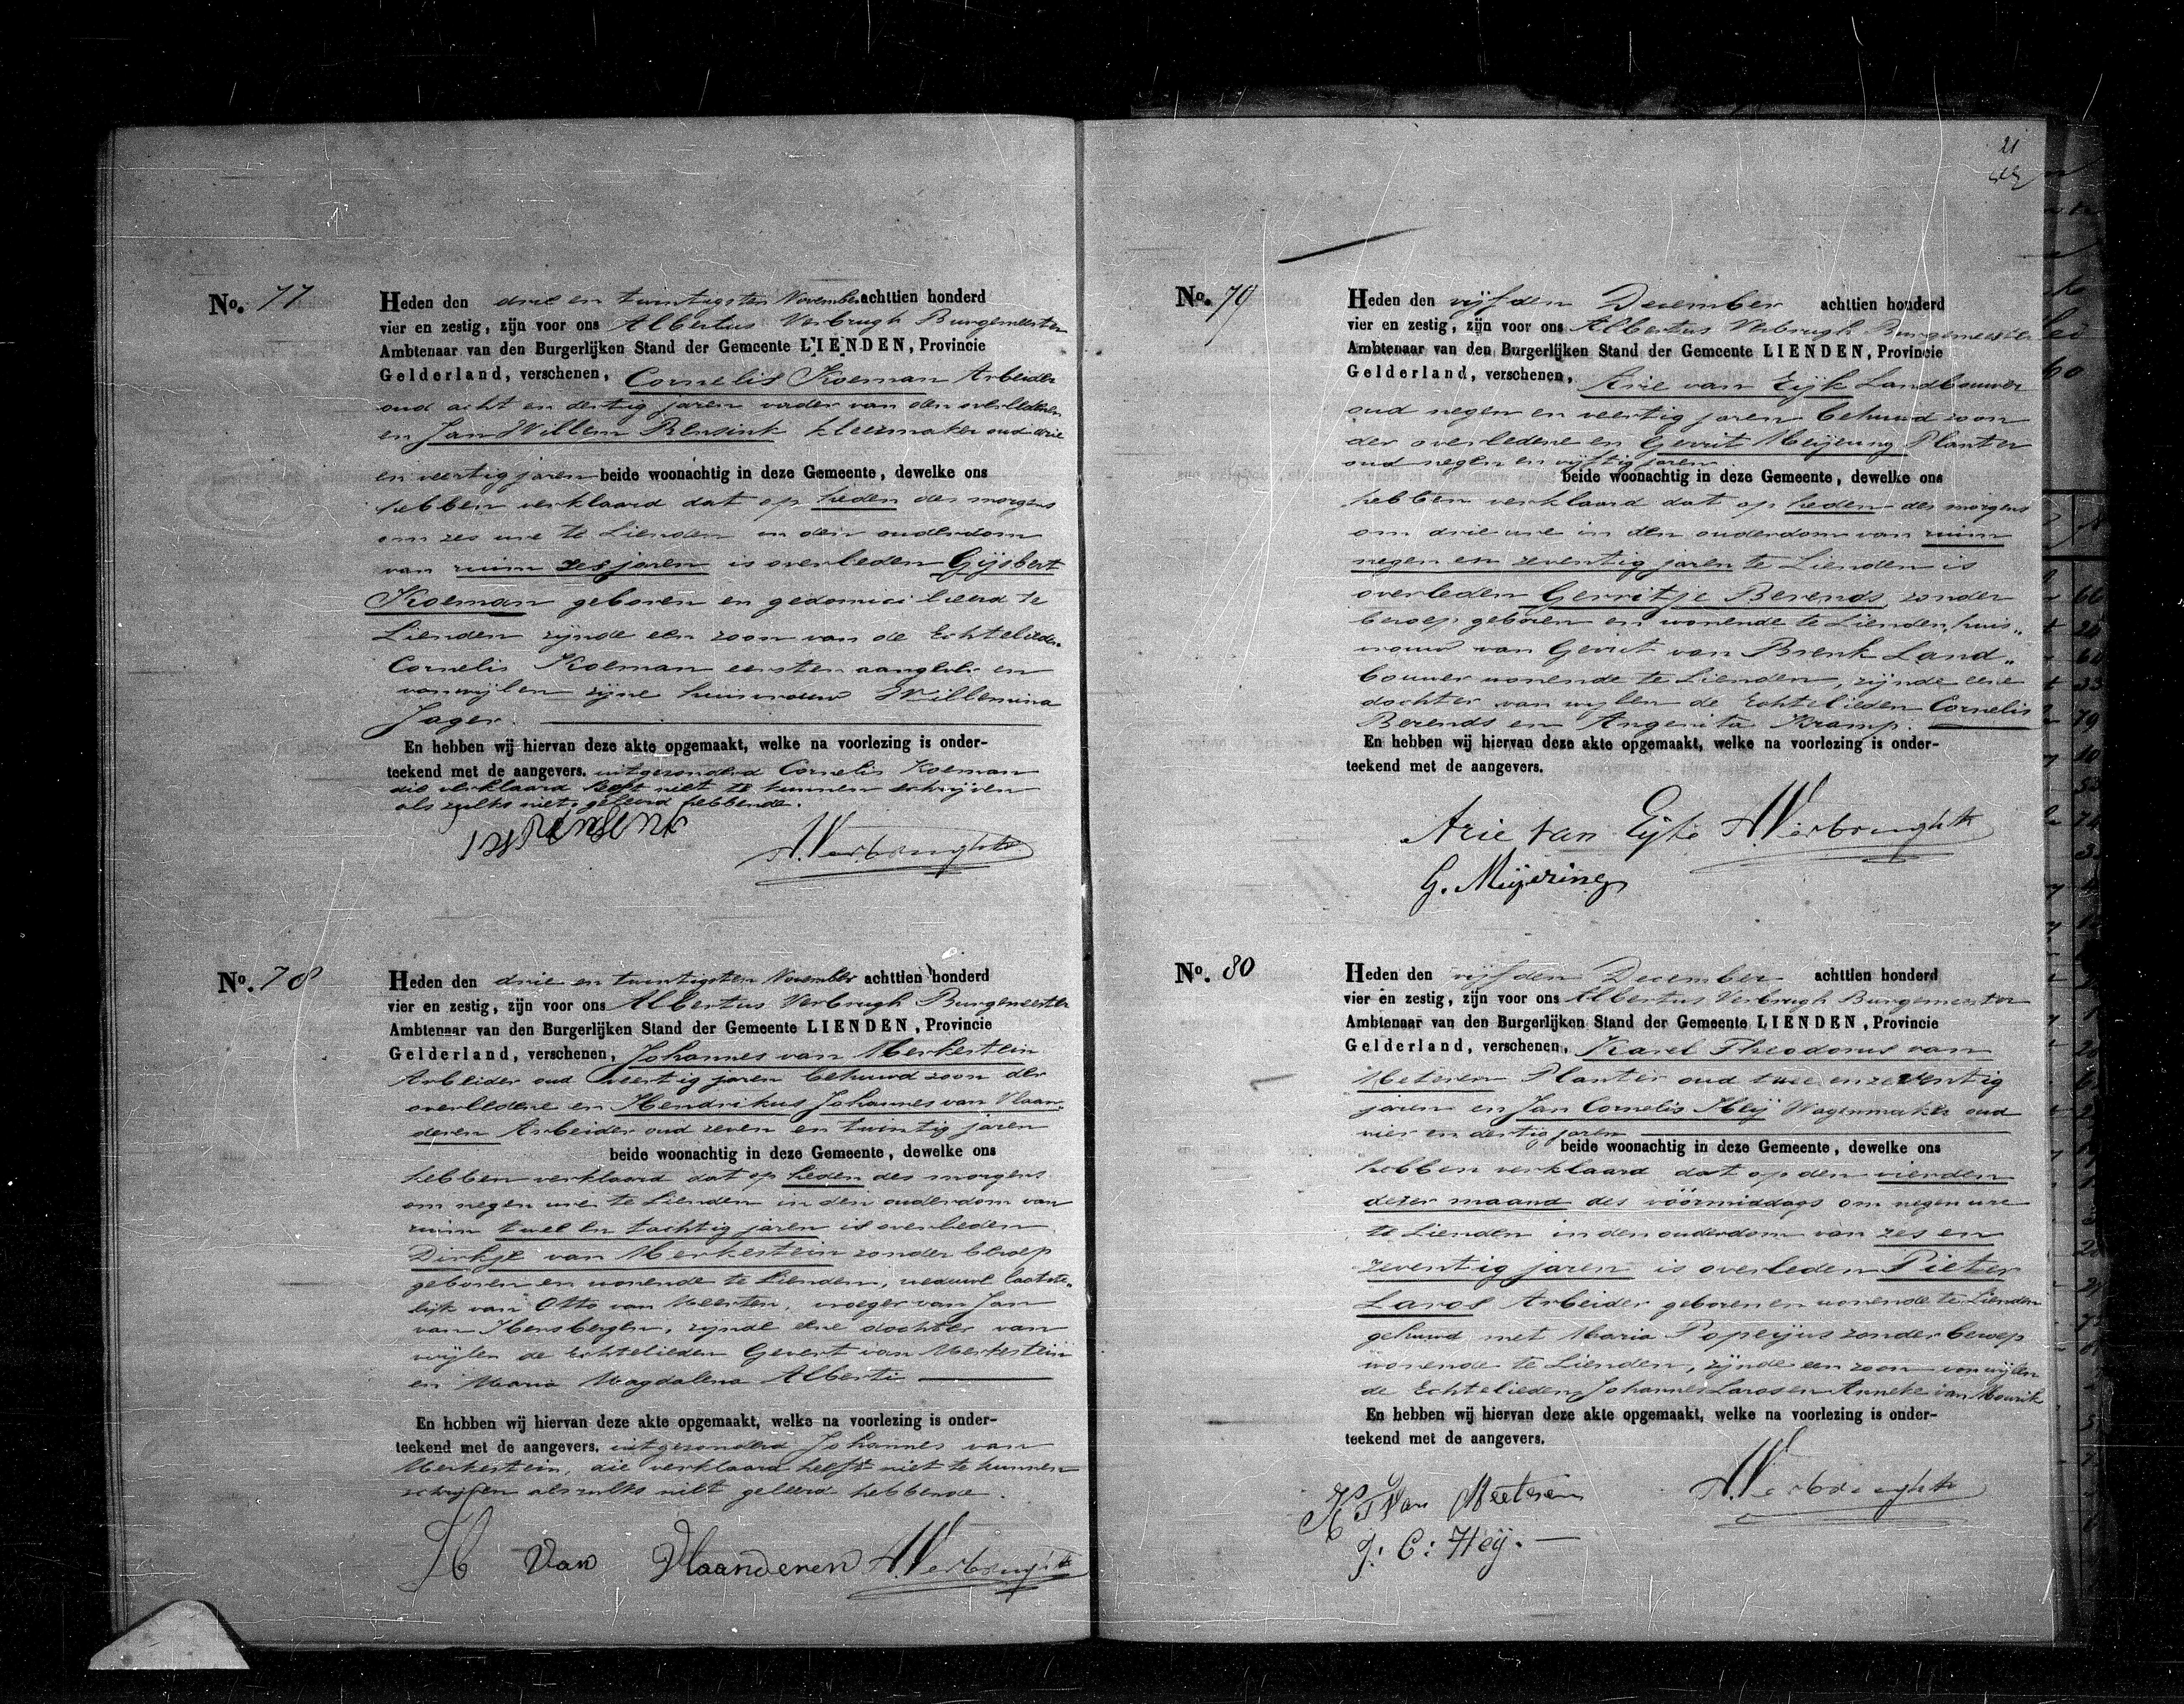 No. 77
Heden den drie en twintigsten November achttien honderd
vier en zestig, zijn voor ons Albertus Verbrugh Burgemeester
Ambtenaar van den Burgerlijken Stand der Gemeente LIENDEN, Provincie
Gelderland, verschenen, Cornelis Koeman Arbeider
oud acht en dertig jaren vader van den overledenen
en Jan Willem Rensink kleermaker oud drie
en veertig jaren beide woonachtig in deze Gemeente, dewelke ons
hebben verklaard dat op heden des morgens
om zes ure te Lienden in den ouderdom
van ruim zes jaren is overleden Gijsbert
Koeman geboren en gedomicilieerd te
Lienden zijnde een zoon van de Echtelieden
Cornelis Koeman eersten aangever en
van wijlen zijne huisvrouw Willemina
Jager.
En hebben wij hiervan deze akte opgemaakt, welke na voorlezing is onder-
teekend met de aangevers. uitgezonderd Cornelis Koeman
die verklaard heeft niet te kunnen schrijven
als zulks niet geleerd hebbende.
A. Verbrugh
No. 78
Heden den drie en twintigsten November achttien honderd
vier en zestig, zijn voor ons Albertus Verbrugh Burgemeester
Ambtenaar van den Burgerlijken Stand der Gemeente LIENDEN, Provincie
Gelderland, verschenen, Johannes van Merkestein
Arbeider oud veertig jaren behuwd zoon der
overledene en Hendrikus Johannes van Vlaan-
deren Arbeider oud zeven en twintig jaren
beide woonachtig in deze Gemeente, dewelke ons
hebben verklaard dat op heden des morgens
om negen ure te Lienden in den ouderdom van
ruim twee en tachtig jaren is overleden
Dirkje van Merkestein zonder beroep
geboren en wonende te Lienden, weduwe laatste-
lijk van Otto van Meerten, vroeger van Jan
van Hensbergen, zijnde eene dochter van
wijlen de Echtelieden Gevert van Merkestein
en Maria Magdalena Alberti
En hebben wij hiervan deze akte opgemaakt, welke na voorlezing is onder-
teekend met de aangevers. uitgezonderd Johannes van
Merkestein, die verklaard heeft niet te kunnen
schrijven als zulks niet geleerd hebbende.
H Van Vlaanderen A. Verbrugh
21
No. 79
Heden den vijfden December achttien honderd
vier en zestig, zijn voor ons Albertus Verbrugh Burgemeester
Ambtenaar van den Burgerlijken Stand der Gemeente LIENDEN, Provincie
Gelderland, verschenen, Arie van Eijk Landbouwer
oud negen en veertig jaren behuwd zoon
der overledene en Gerrit Meijering Planter
oud negen en vijftig jaren
beide woonachtig in deze Gemeente, dewelke ons
hebben verklaard dat op heden des morgens
om drie ure in den ouderdom van ruim
negen en zeventig jaren te Lienden is
overleden Gerritje Berends, zonder
beroep geboren en wonende te Lienden, huis-
vrouw van Gerrit van Brenk Land-
bouwer wonende te Lienden, zijnde eene
dochter van wijlen de Echtelieden Cornelis
Berends en Angenita Kramp.
En hebben wij hiervan deze akte opgemaakt, welke na voorlezing is onder-
teekend met de aangevers.
Arie Van Eijk A. Verbrugh
G. Meijering
No. 80
Heden den vijfden December achttien honderd
vier en zestig, zijn voor ons Albertus Verbrugh Burgemeester
Ambtenaar van den Burgerlijken Stand der Gemeente LIENDEN, Provincie
Gelderland, verschenen, Karel Theodorus van
Meteren Planter oud twee en zeventig
jaren en Jan Cornelis Heij Wagenmaker oud
vier en dertig jaren
beide woonachtig in deze Gemeente, dewelke ons
hebben verklaard dat op den vierden
dezer maand des voormiddags om negen ure
te Lienden in den ouderdom van zes en
zeventig jaren is overleden Pieter
Laros Arbeider geboren en wonende te Lienden
gehuwd met Maria Popeijus zonder beroep
wonende te Lienden, zijnde een zoon van wijlen
de Echtelieden Johannes Laros en Anneke van Mourik
En hebben wij hiervan deze akte opgemaakt, welke na voorlezing is onder-
teekend met de aangevers.
K T Van Meeteren A. Verbrugh
J: C: Heij.